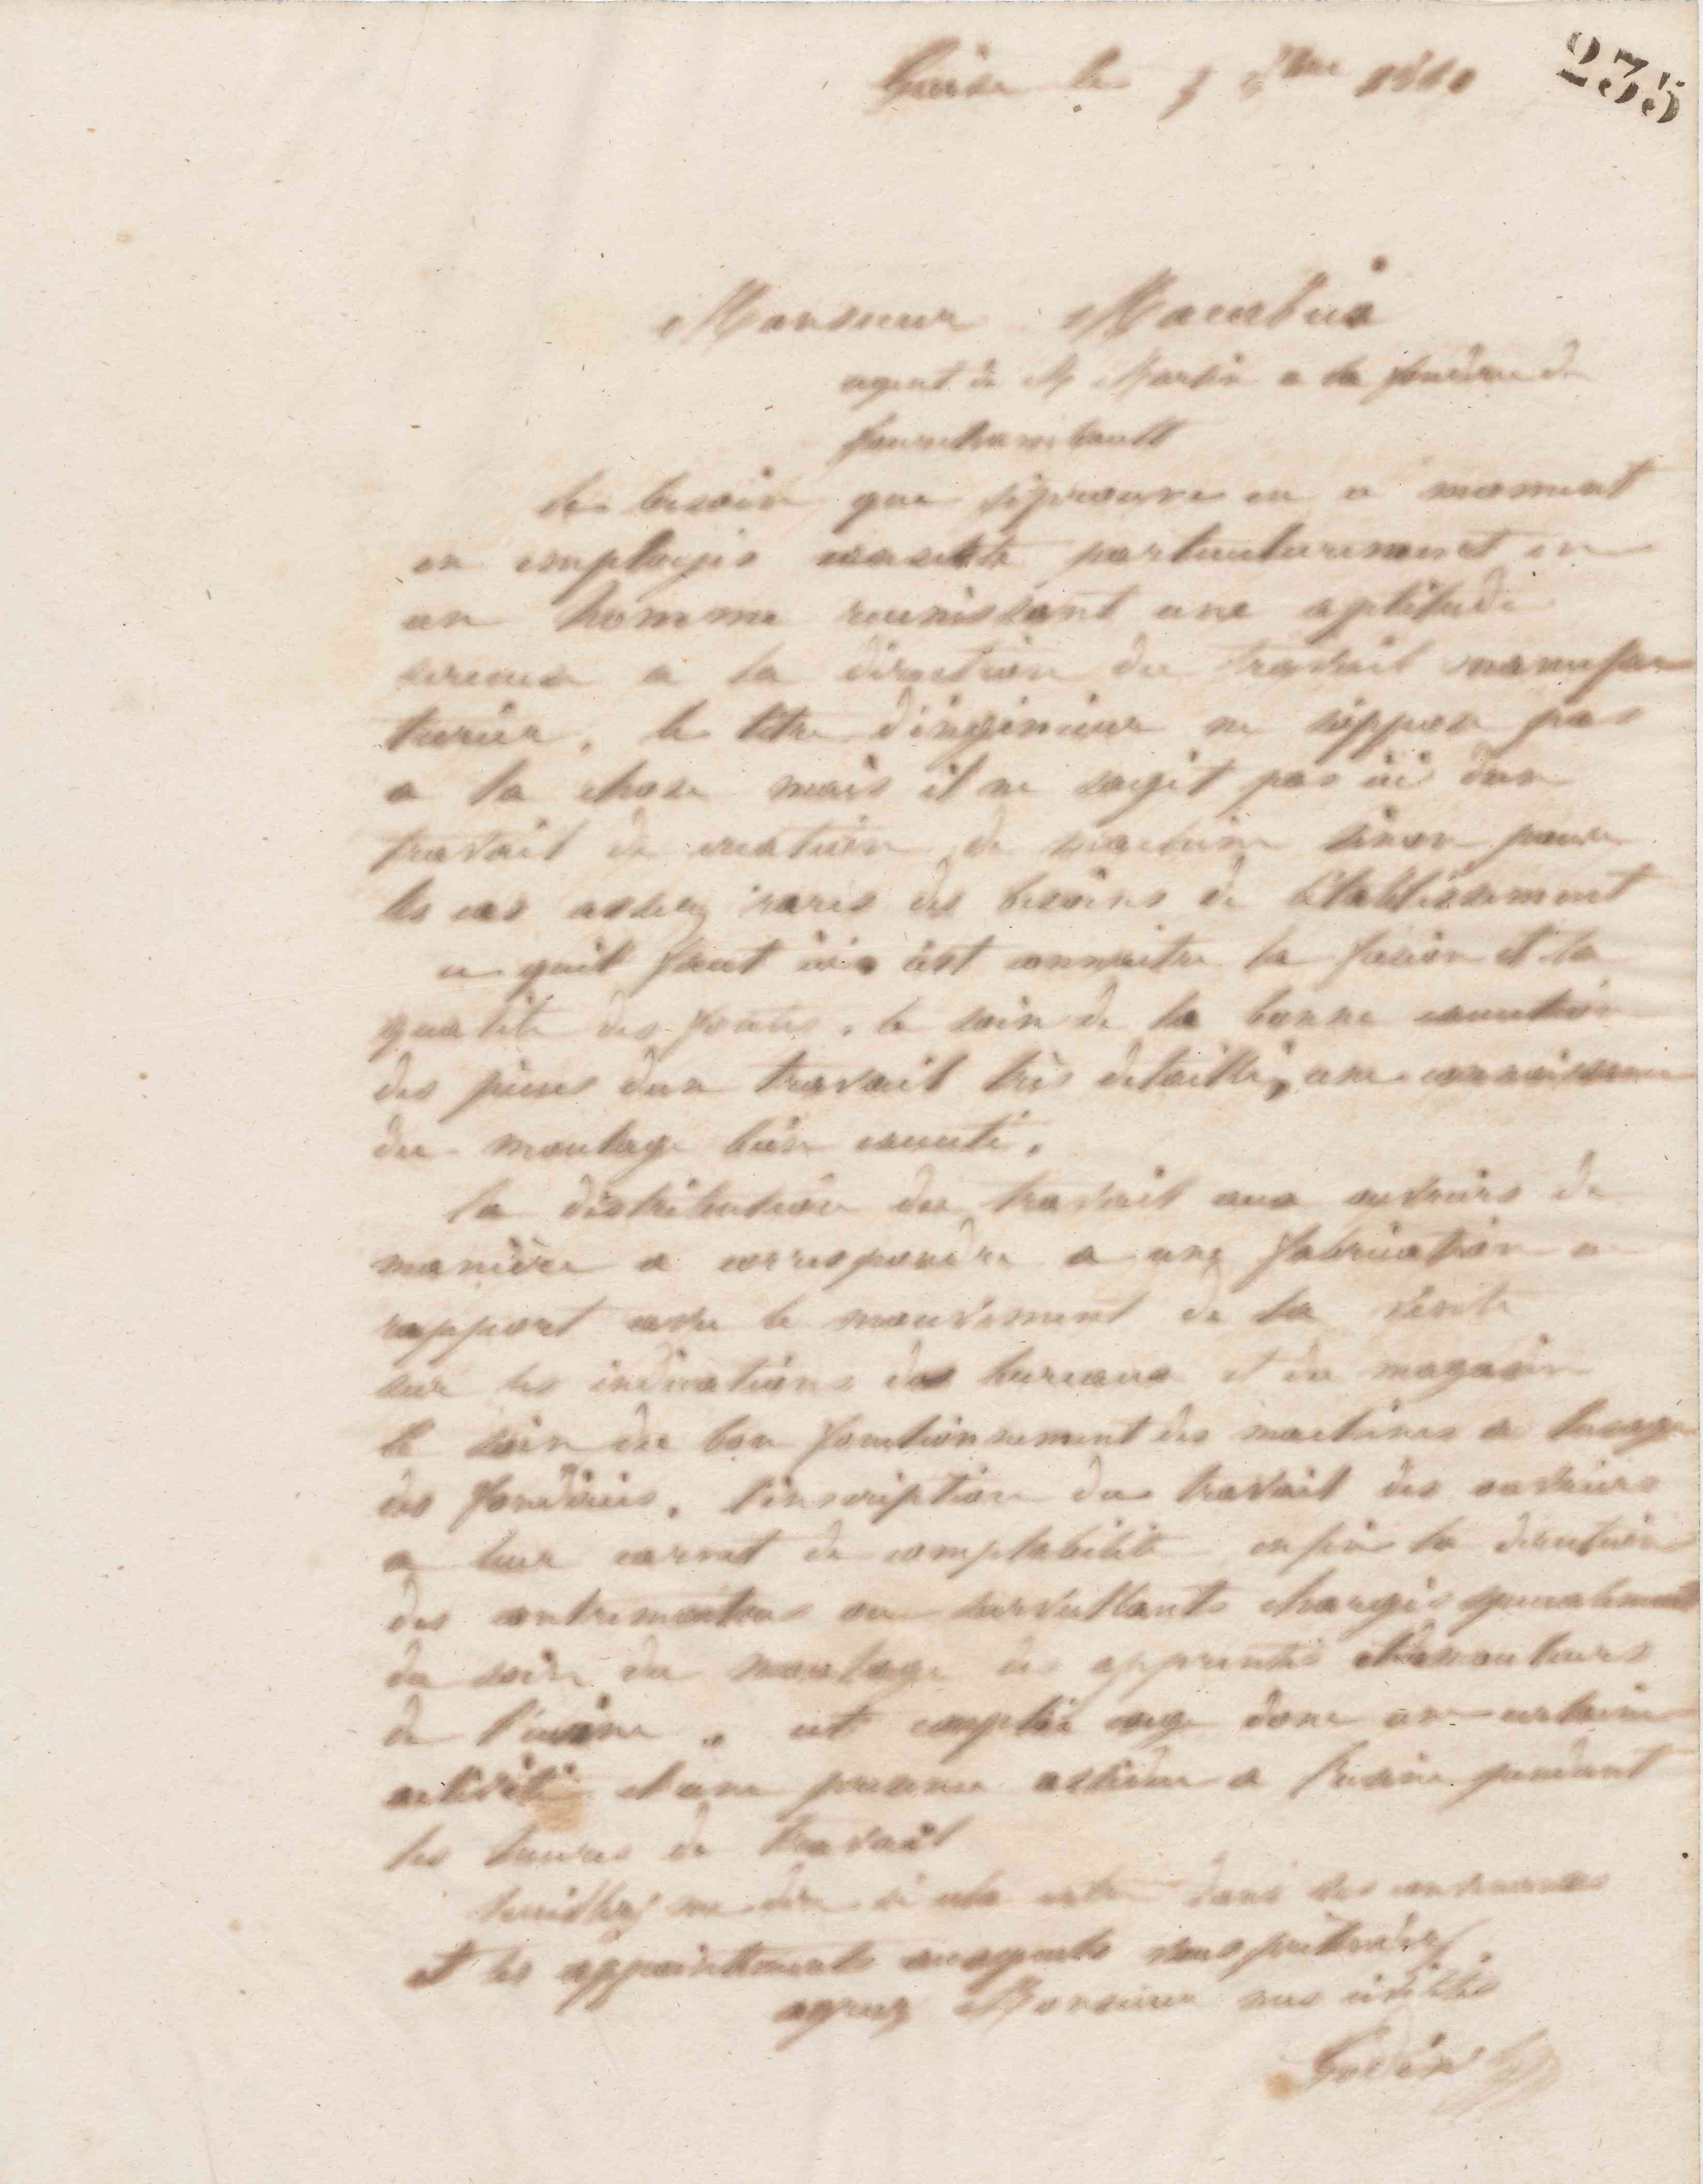 235
Guise le 8bre
Monsieur
agent de M Martin a la fonderie de
fourchambault
le besoin que j'éprouve en ce moment
en employés consiste particulierement en
un homme reunissant une aptitude
serieuse a la direction du travail manufac
turier, le titre d'ingénieur ne s'oppose pas
a la chose mais il ne sagit pas ici dun
travail de creation de machine sinon pour
les cas assez rares des besoins de l'établissement
ce quil faut ici cest connaitre la fusion et la
qualité des fontes, le soin de la bonne execution
des pieces dun travail très détaillé, une connaissance
du moulage bien executé.
la distribution du travail aux ouvriers de
manière a correspondre a une fabrication en
rapport avec le mouvement de la vente
sur les indications des bureaux et du magasin
le soin du bon fonctionnement des machines a lusage
des fonderies, l'inscription du travail des ouvriers
a leur carnet de comptabilité enfin la direction
des contremaitres ou surveillants chargés specialement
du soin du moulage des apprentis et des mouleurs
de l'usine, cet emploi exige donc une certaine
activité et une presence assidue a l'usine pendant
les heures de travail
veuillez me dire si cela entre dans vos convenances
et les appointements auxquels vous prétendez.
agreez Monsieur mes civilités
Godin